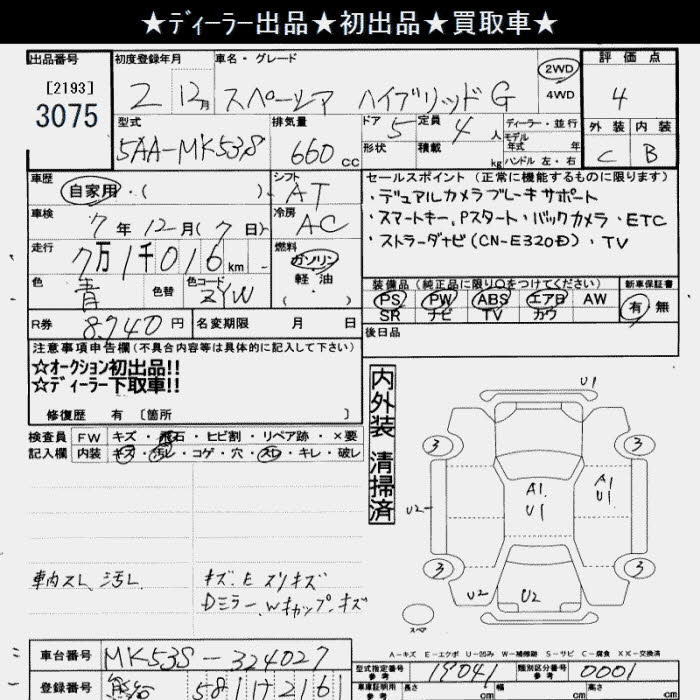 ★ﾃﾞｨｰﾗｰ出品★初出品★買取車★
出品番号 初度登録年月 車名・グレード 2WD 評価点
[2193]
3075
2 12月 スペーシア ハイブリッド G 4WD 4
型式 排気量 ドア 5 定員 4人 ディーラー・並行 外装 内装
5AA-MK53S 660cc 形状 積載 kg モデル年式 年式 ハンドル 左・右 C B
車歴 シフト セールスポイント (正常に機能するものに限ります)
自家用・( ) AT ・デュアルカメラブレーキサポート
車検 冷房 ・スマートキー、Pスタート・バックカメラ・ETC
7年12月(7日) AC ・ストラーダナビ(CN-E320D)・TV
走行 燃料
7万1千016km ガソリン
軽油
( ・ )
色 色替 色コード 装備品 (純正品に限り○をつけてください) 新車保証書
青 ZYW PS PW ABS エアB AW 有 無
SR ナビ TV カワ
R券 8,940円 名変期限 月 日 後日品
注意事項申告欄(不具合内容等は具体的に記入して下さい)
☆オークション初出品!!
☆ディーラー下取車!!
修復歴 有 〔箇所 〕
検査員 FW キズ・飛石・ヒビ割・リペア跡・×要
記入欄 内装 キズ・汚レ・コゲ・穴・スレ・キレ・破レ
内外装 清掃済
U1
3 3
A1 U1
A1 U1
U2
3 3
U2 U2
スペア
車内スレ、汚レ キズ、E スリキズ
Dミラー、Wキャップ、キズ
A-キズ E-エクボ U-凹み W-補修跡 S-サビ C-腐食 XX-交換済
車台番号 MK53S-324027
型式指定番号 参考 19041 類別区分番号 参考 0001
登録番号 581 2161
車庫証明用 参考 長さ cm 幅 cm 高さ cm